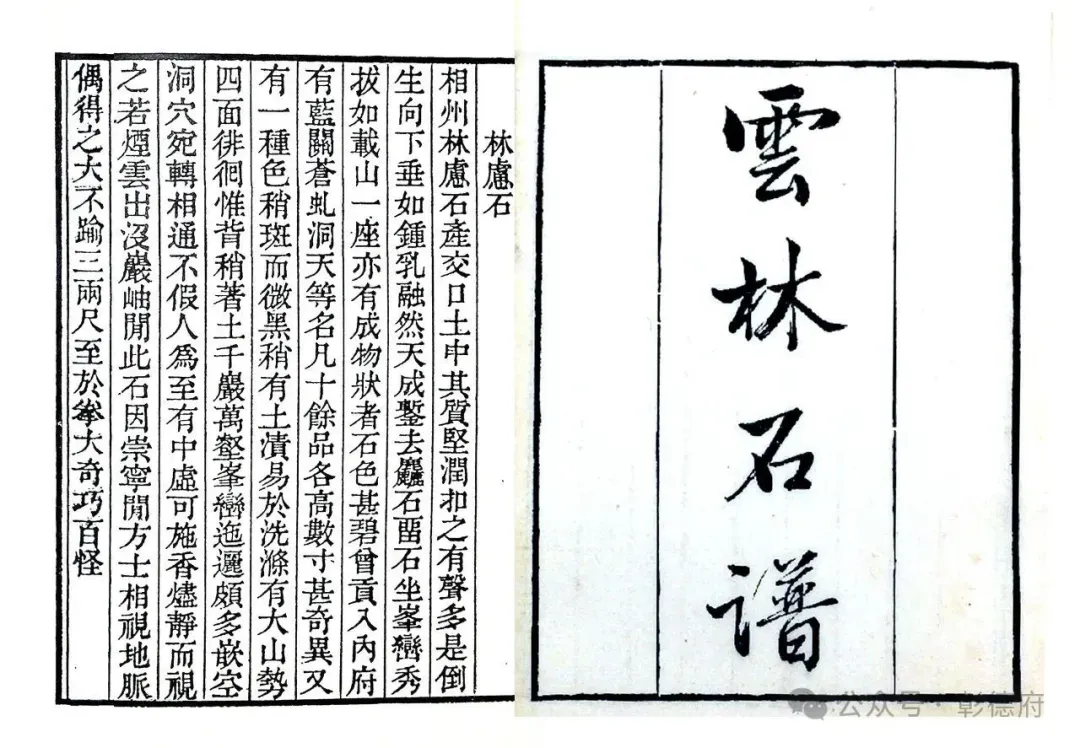 雲林石譜
林慮石
相州林慮石產交口土中其質堅潤扣之有聲多是倒
生向下垂如鍾乳融然天成鏨去麤石畱石坐峯巒秀
拔如載山一座亦有成物狀者石色甚碧曾貢入內府
有藍關蒼虬洞天等名凡十餘品各高數寸甚奇異又
有一種色稍斑而微黑稍有土漬易於洗滌有大山勢
四面徘徊惟背稍著土千巖萬壑峯巒迤邐頗多嵌空
洞穴宛轉相通不假人爲至有中虛可施香燼靜而視
之若煙雲出沒巖岫閒此石因崇寧閒方士相視地脈
偶得之大不踰三兩尺至於拳大奇巧百怪
公众号·彰德府